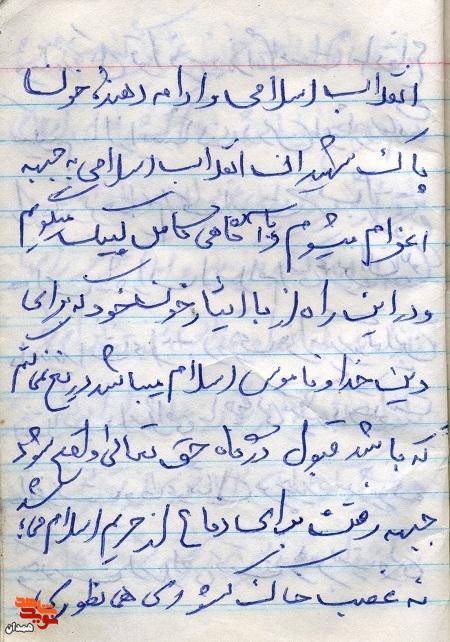 انقلاب اسلامی و ادامه دهنده خون
پاک شهیدان انقلاب اسلامی به جبهه
اعزام میشوم و با آگاهی کامل لبیک میگویم
و در این راه از با ایثار خون خود که برای
دین خدا و ناموس اسلام میباشد دریغ نمائم
که باشد قبول درگاه حق تعالی واقع شود
جبهه رفتن برای دفاع از حریم اسلام می باشد
نه غصب خاک کشوری همانطوری که
نوید شاهد
همدان